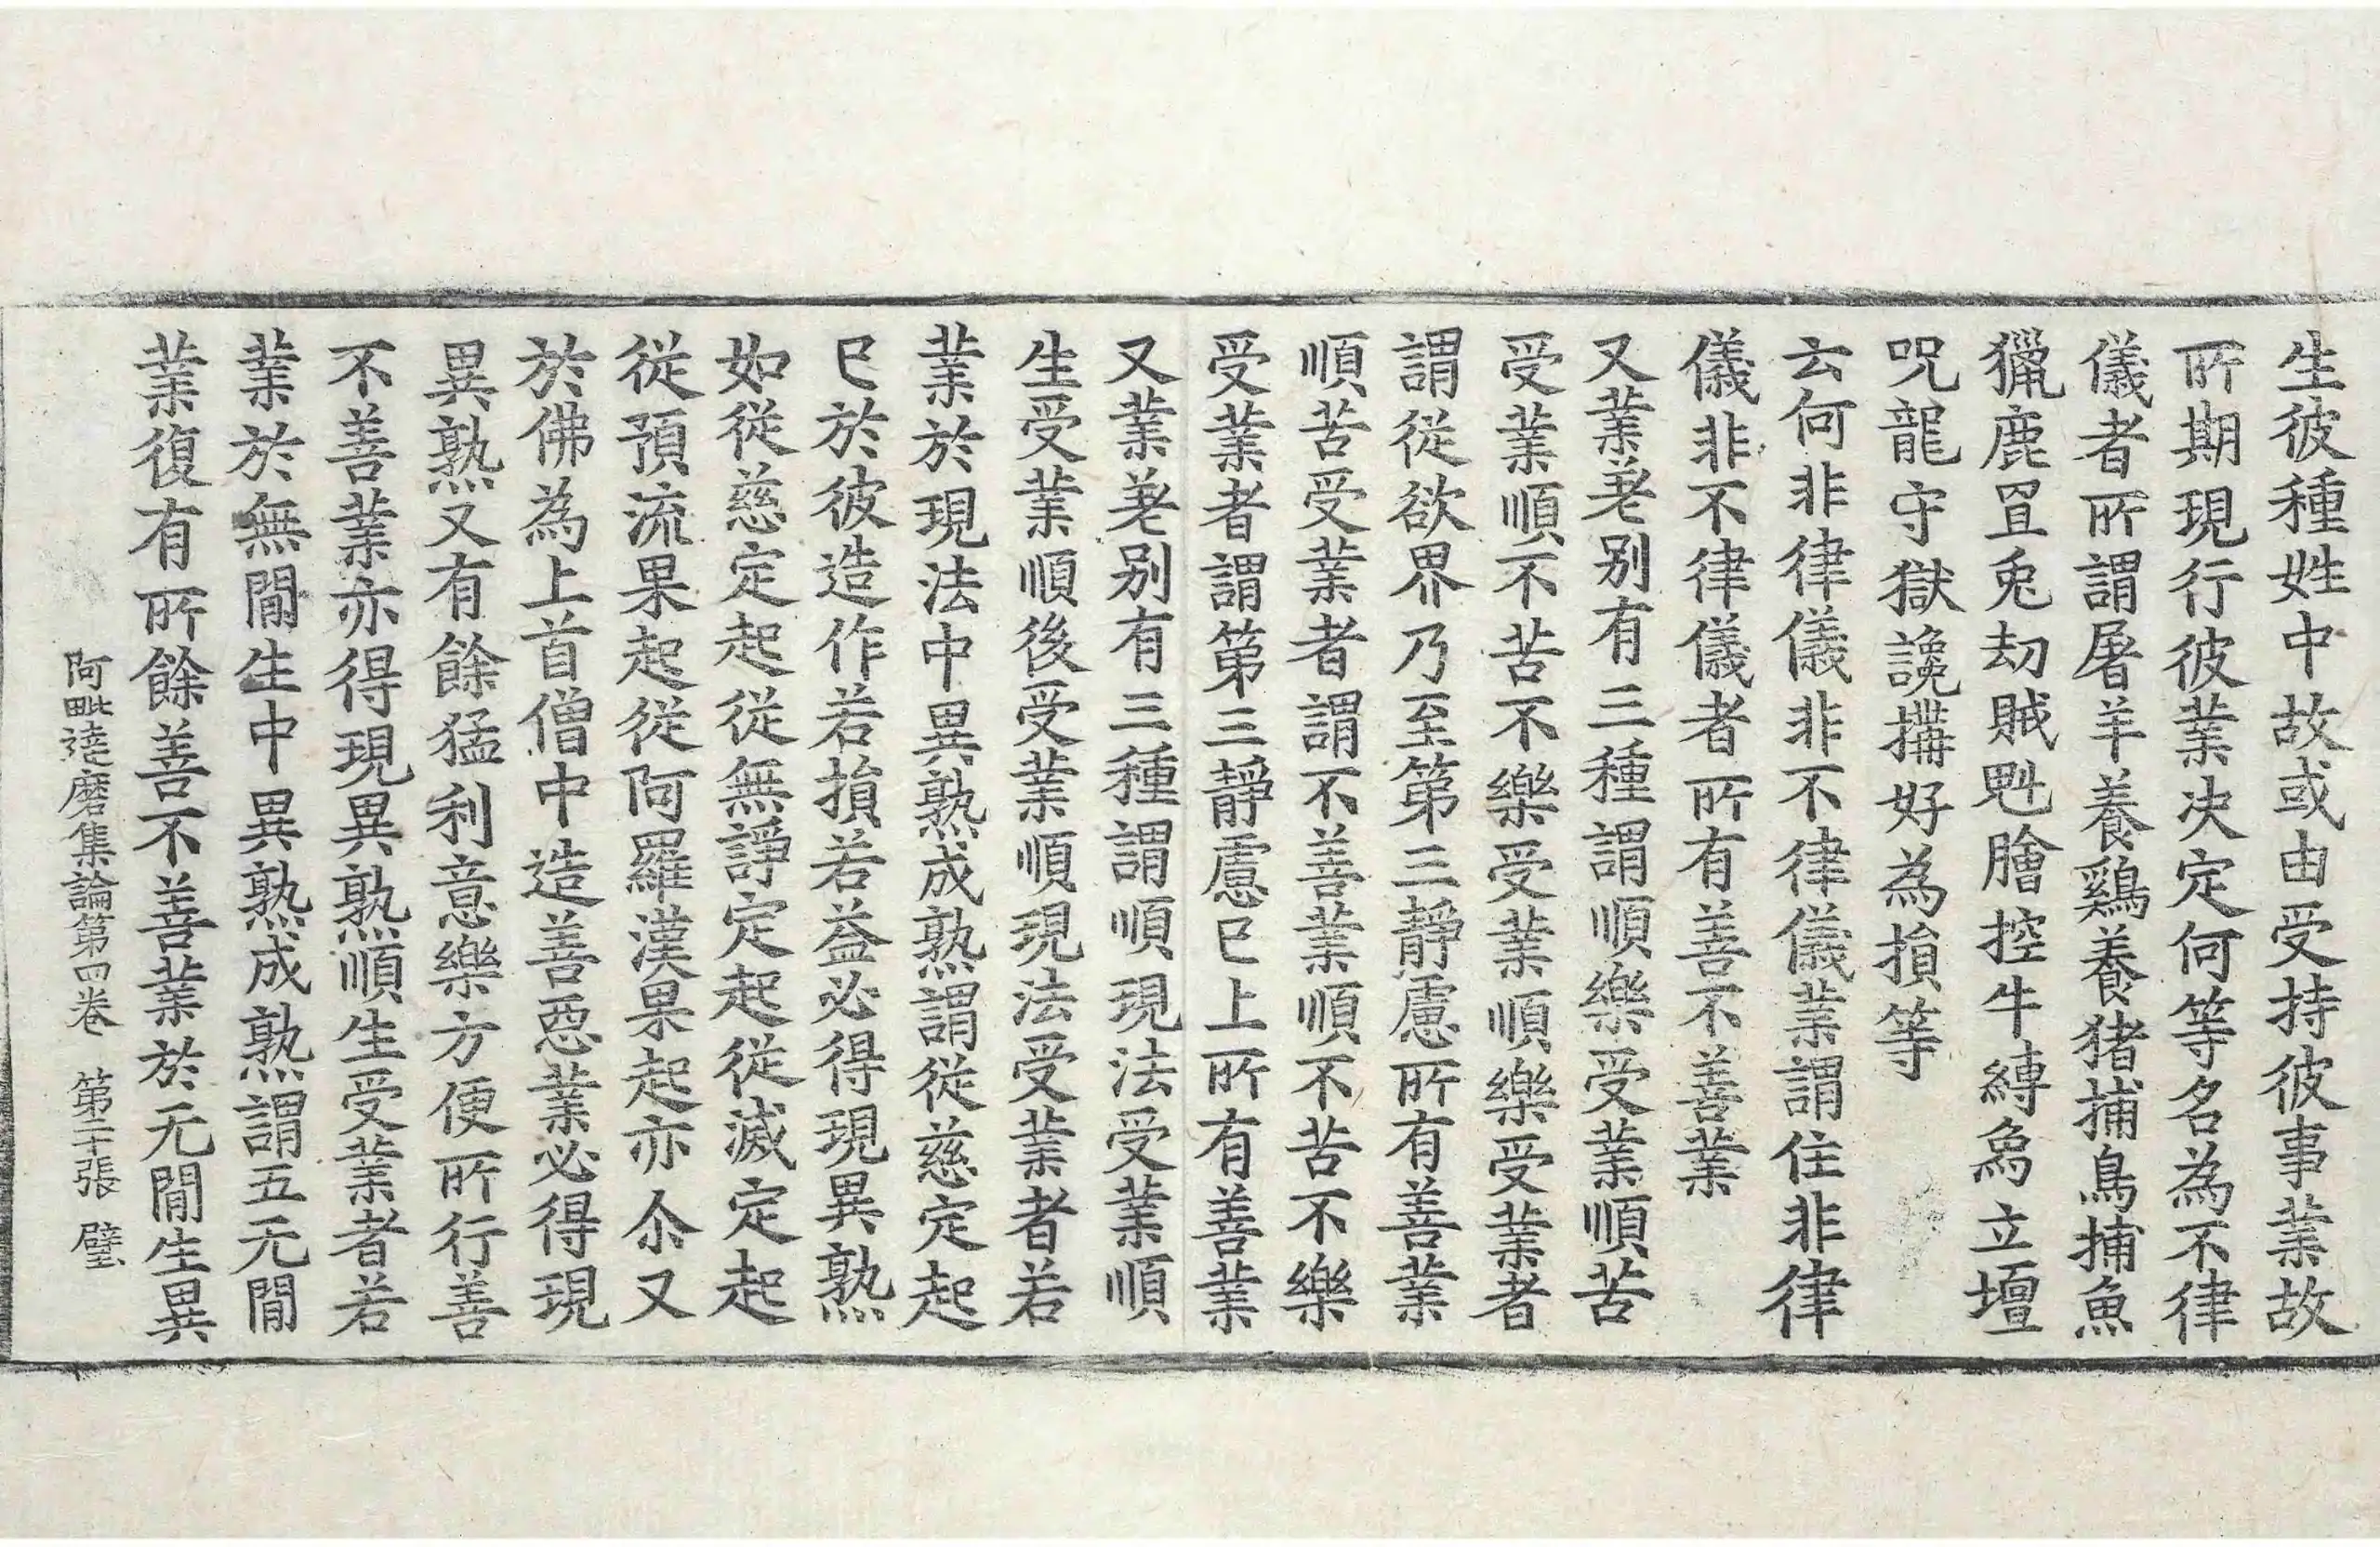 生彼種姓中故或由受持彼事業故
所期現行彼業决定何等名為不律
儀者所謂屠羊養鷄養猪捕鳥捕魚
獵鹿罝兎劫賊魁膾控牛縛烏立壇
呪龍守獄讒搆好為損等
云何非律儀非不律儀業謂住非律
儀非不律儀者所有善不善業
又業差别有三種謂順樂受業順苦
受業順不苦不樂受業順樂受業者
謂從欲界乃至第三靜慮所有善業
順苦受業者謂不善業順不苦不樂
受業者謂第三靜慮已上所有善業
又業差别有三種謂順現法受業順
生受業順後受業順現法受業者若
業於現法中異熟成熟謂從慈定起
已於彼造作若損若益必得現異熟
如從慈定起從無諍定起從滅定起
從預流果起從阿羅漢果起亦尒又
於佛為上首僧中造善惡業必得現
異熟又有餘猛利意樂方便所行善
不善業亦得現異熟順生受業者若
業於無間生中異熟成熟謂五无間
業復有所餘善不善業於无間生異
阿毗達磨集論第四卷 第二十張 璧